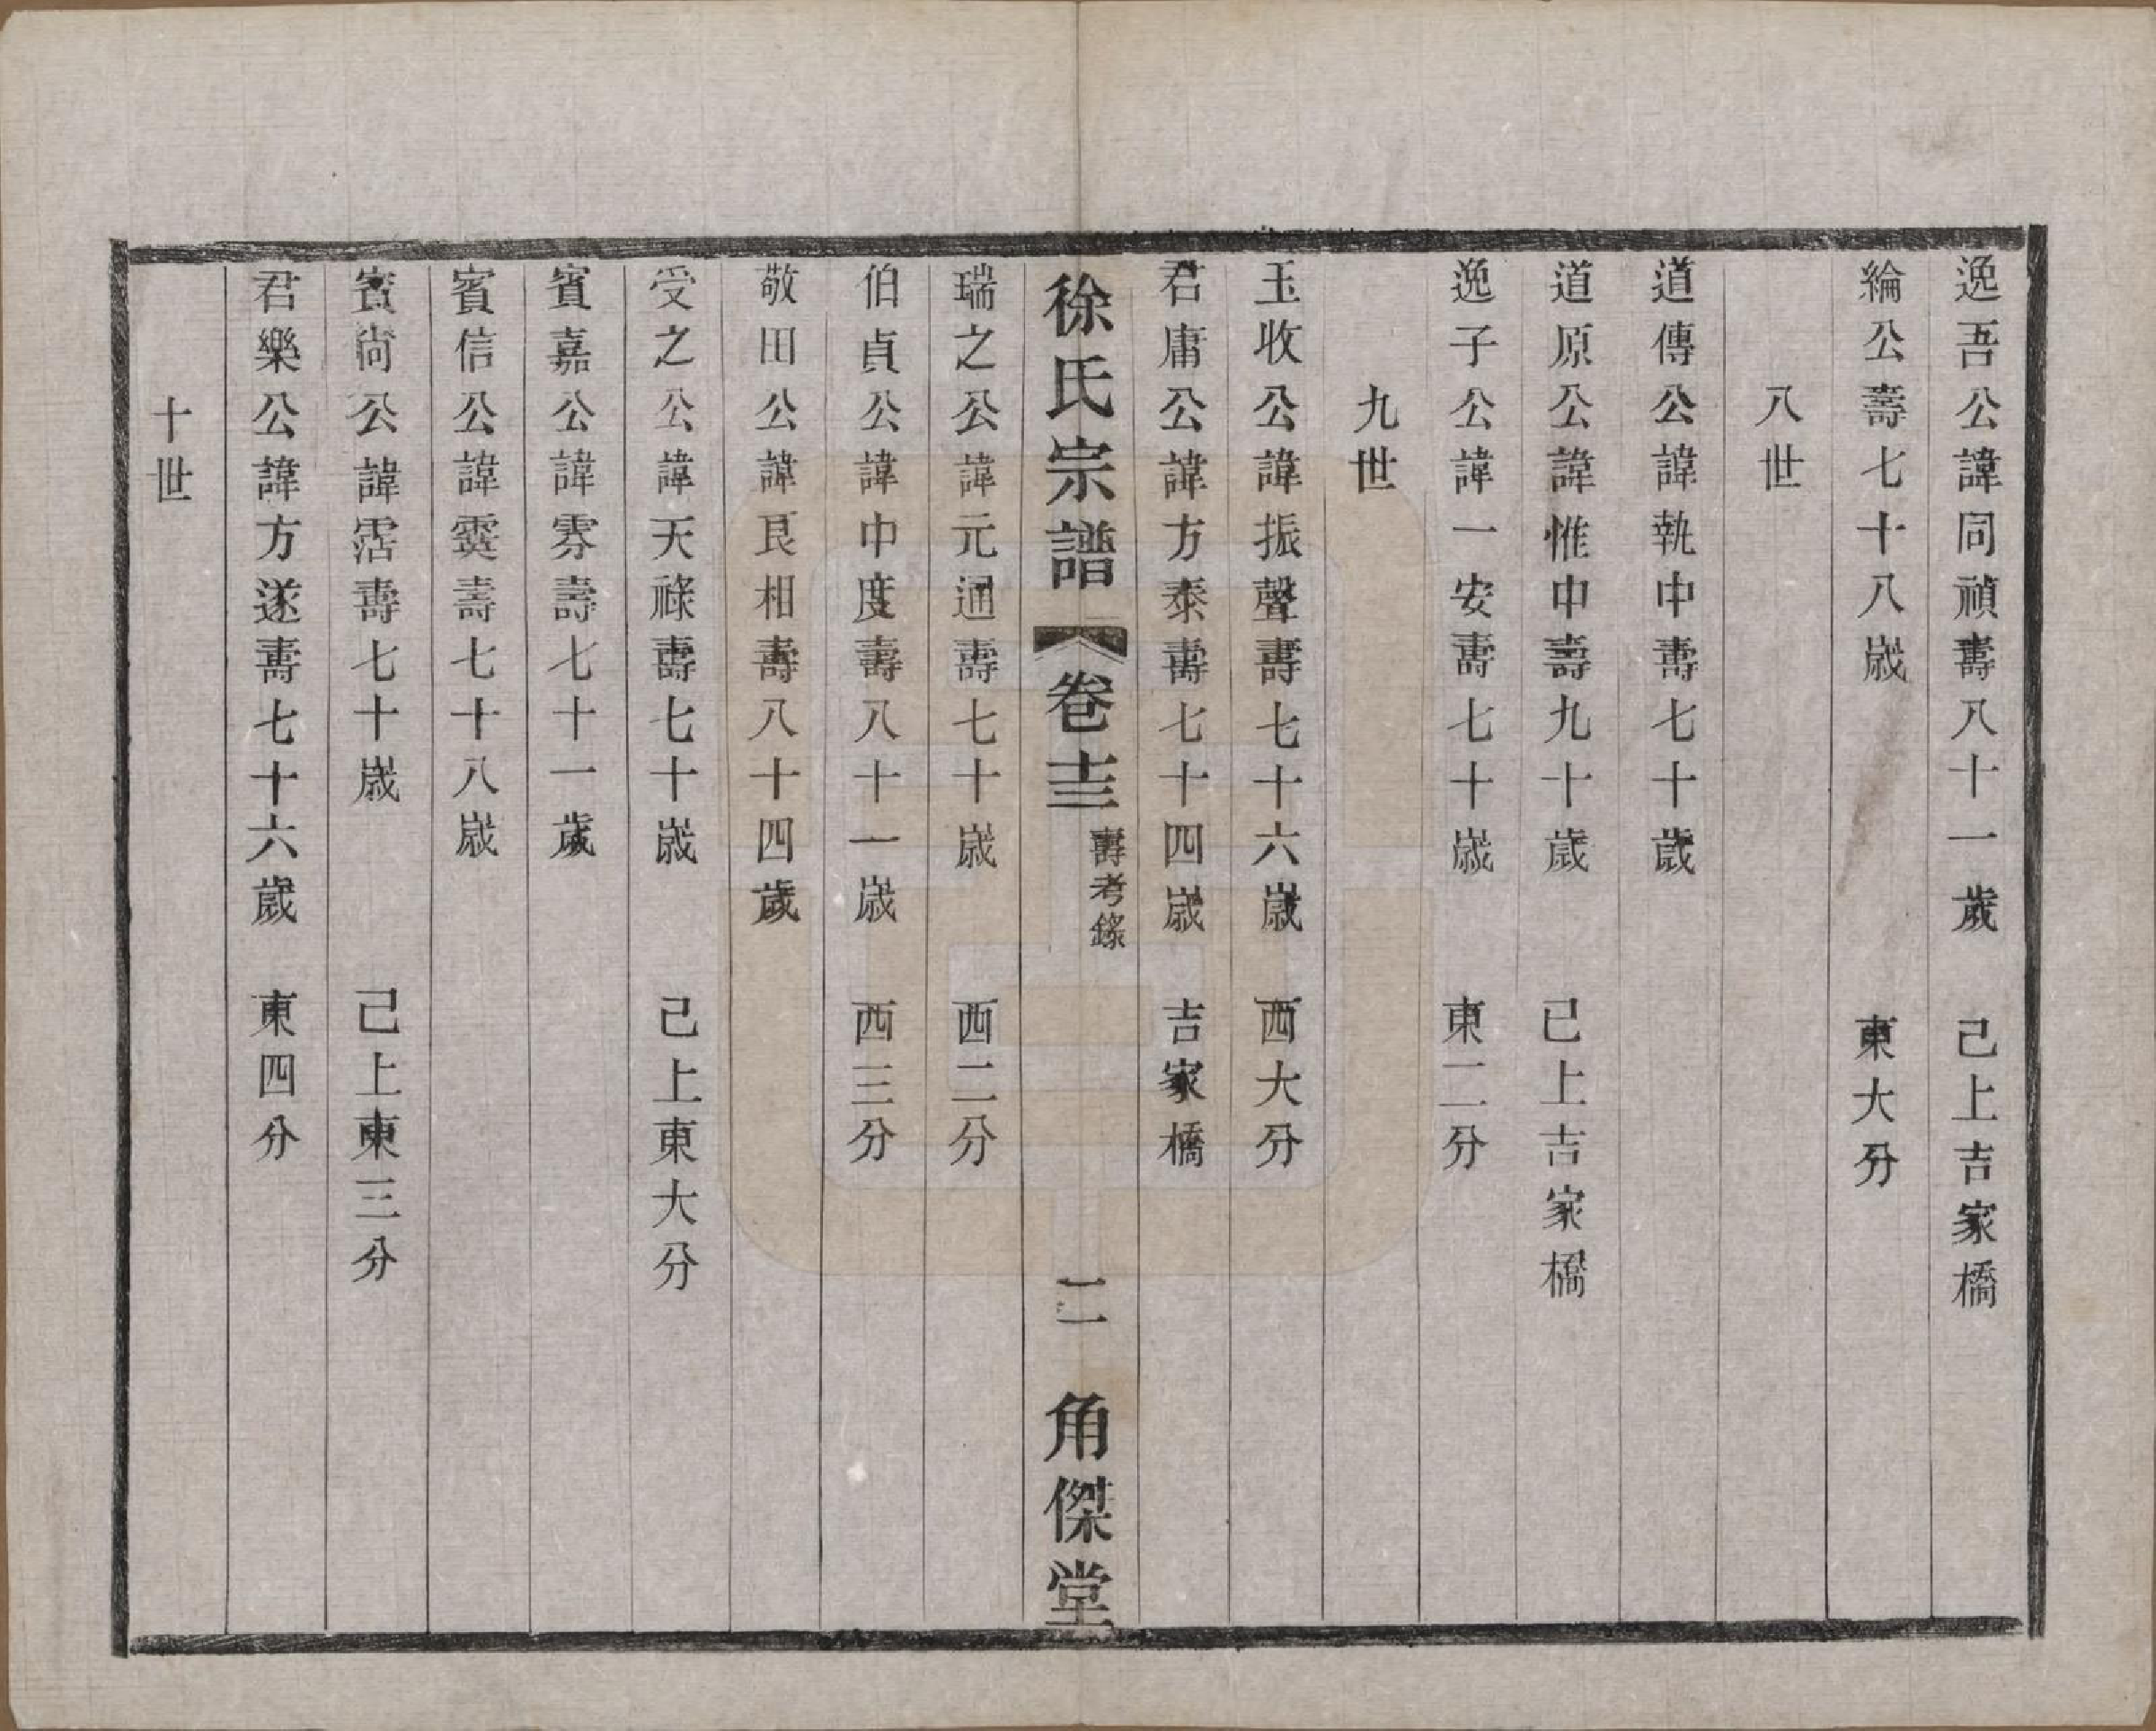 逸吾公諱同禎壽八十一歲　己上吉家橋
綸公壽七十八歲　東大分
八世
道傳公諱執中壽七十歲
道原公諱惟中壽九十歲　己上吉家橋
逸子公諱一安壽七十歲　東二分
九世
玉收公諱振聲壽七十六歲　西大分
君庸公諱方泰壽七十四歲　吉家橋
徐氏宗譜　卷十三　壽考錄　二　角傑堂
瑞之公諱元通壽七十歲　西二分
伯貞公諱中度壽八十一歲　西三分
敬田公諱艮相壽八十四歲
受之公諱天祿壽七十歲　己上東大分
賓嘉公諱雰壽七十一歲
賓信公諱霙壽七十八歲
賓尚公諱霑壽七十歲　己上東三分
君樂公諱方遂壽七十六歲　東四分
十世